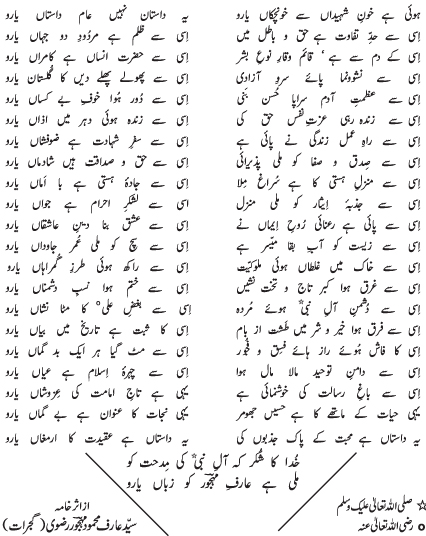 ہوئی ہے خونِ شہیداں سے خونچکاں یارو یہ داستان نہیں عام داستاں یارو
اِسی سے حدِّ تفاوت ہے حق و باطل میں اِسی سے ظلم ہے مردُودِ دو جہاں یارو
اِسی کے دم سے ہے، قائم وقارِ نوعِ بشر اِسی سے حضرتِ انساں ہے کامراں یارو
اِسی سے نشوونما پائے سروِ آزادی اِسی سے پھولے پھلے دیں کا گلستاں یارو
اِسی سے عظمتِ آدم سراپا حُسن بنی اِسی سے دُور ہُوا خوفِ بے کساں یارو
اِسی سے زندہ رہی عزتِ نفس حق کی اِسی سے زندہ ہوئی دہر میں اذاں یارو
اِسی سے راہِ عمل زندگی نے پائی ہے اِسی سے سفرِ شہادت ہے ضوفشاں یارو
اِسی سے صِدق و صفا کو ملی پذیرائی اِسی سے حق و صداقت ہیں شادماں یارو
اِسی سے منزلِ ہستی کا ہے سُراغ مِلا اِسی سے جادۂ ہستی ہے با اَماں یارو
اِسی سے جذبۂ ایثار کو ملی منزل اسی سے لشکرِ احرام ہے جواں یارو
اِسی سے پائی ہے رعنائی رُوحِ ایماں نے اِسی سے عشق بنا دینِ عاشقاں یارو
اِسی سے زیست کو آبِ بقا میّسر ہے اِسی سے سچ کو ملی عُمرِ جاوداں یارو
اِسی سے خاک میں غلطاں ہوئی ملوکیّت اِسی سے راکھ ہوئی طرزِ گُمراہاں یارو
اِسی سے غرق ہوا کبر تاج و تخت نشیں اِسی سے ختم ہوا نسبِ دشمناں یارو
اِسی سے دُشمنِ آلِ نبیؐ ہوئے مُردہ اِسی سے بغضِ علیؓ کا مٹا نشاں یارو
اِسی سے فرق ہوا خیر و شر میں طشت از بام اِسی کا ثبت ہے تاریخ میں بیاں یارو
اِسی کا فاش ہوئے راز ہائے فسق و فجور اِسی سے مٹ گیا ہر ایک بد گماں یارو
اِسی سے دامنِ توحید مالا مال ہوا اِسی سے چہرۂ اِسلام ہے عیاں یارو
اِسی سے باغِ رسالت کی خوشنمائی ہے یہی ہے تاجِ امامت کی عزوشاں یارو
یہی حیات کے ماتھے کا ہے حسیں جھومر یہی نجات کا عنوان ہے بے گماں یارو
یہ داستاں ہے محبت کے پاک جذبوں کی یہ داستاں ہے عقیدت کا ارمغاں یارو
خُدا کا شُکر کہ آلِ نبیؐ کی مِدحت کو
ملی ہے عارفِ مہجور کو زباں یارو
☆ صلی اللہ تعالیٰ علیک وسلم
○ رضی اللہ تعالیٰ عنہ
از اثر خامہ
سیّد عارف محمود مہجور رضوی (گجرات)